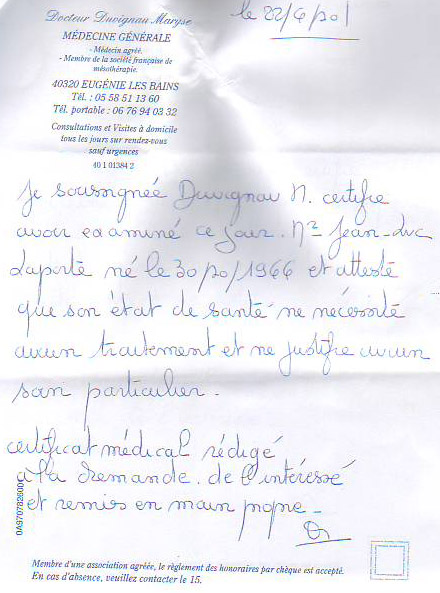 Docteur Duvignau Maryse
le 22/6/201
MÉDECINE GÉNÉRALE
- Médecin agréé.
- Membre de la société française de
mésothérapie.
40320 EUGÉNIE LES BAINS
Tél. : 05 58 51 13 60
Tél. portable : 06 76 94 03 32
Consultations et Visites à domicile
tous les jours sur rendez-vous
sauf urgences
40 1 01384 2
Je soussignée Duvignau M. certifie
avoir examiné ce jour. Mr Jean-Luc
Laporte né le 30/10/1966 et atteste
que son état de santé ne nécessite
aucun traitement et ne justifie aucun
soin particulier.
certificat médical rédigé
à la demande. de l'intéressé
et remis en main propre.
Membre d'une association agréée, le règlement des honoraires par chèque est accepté.
En cas d'absence, veuillez contacter le 15.